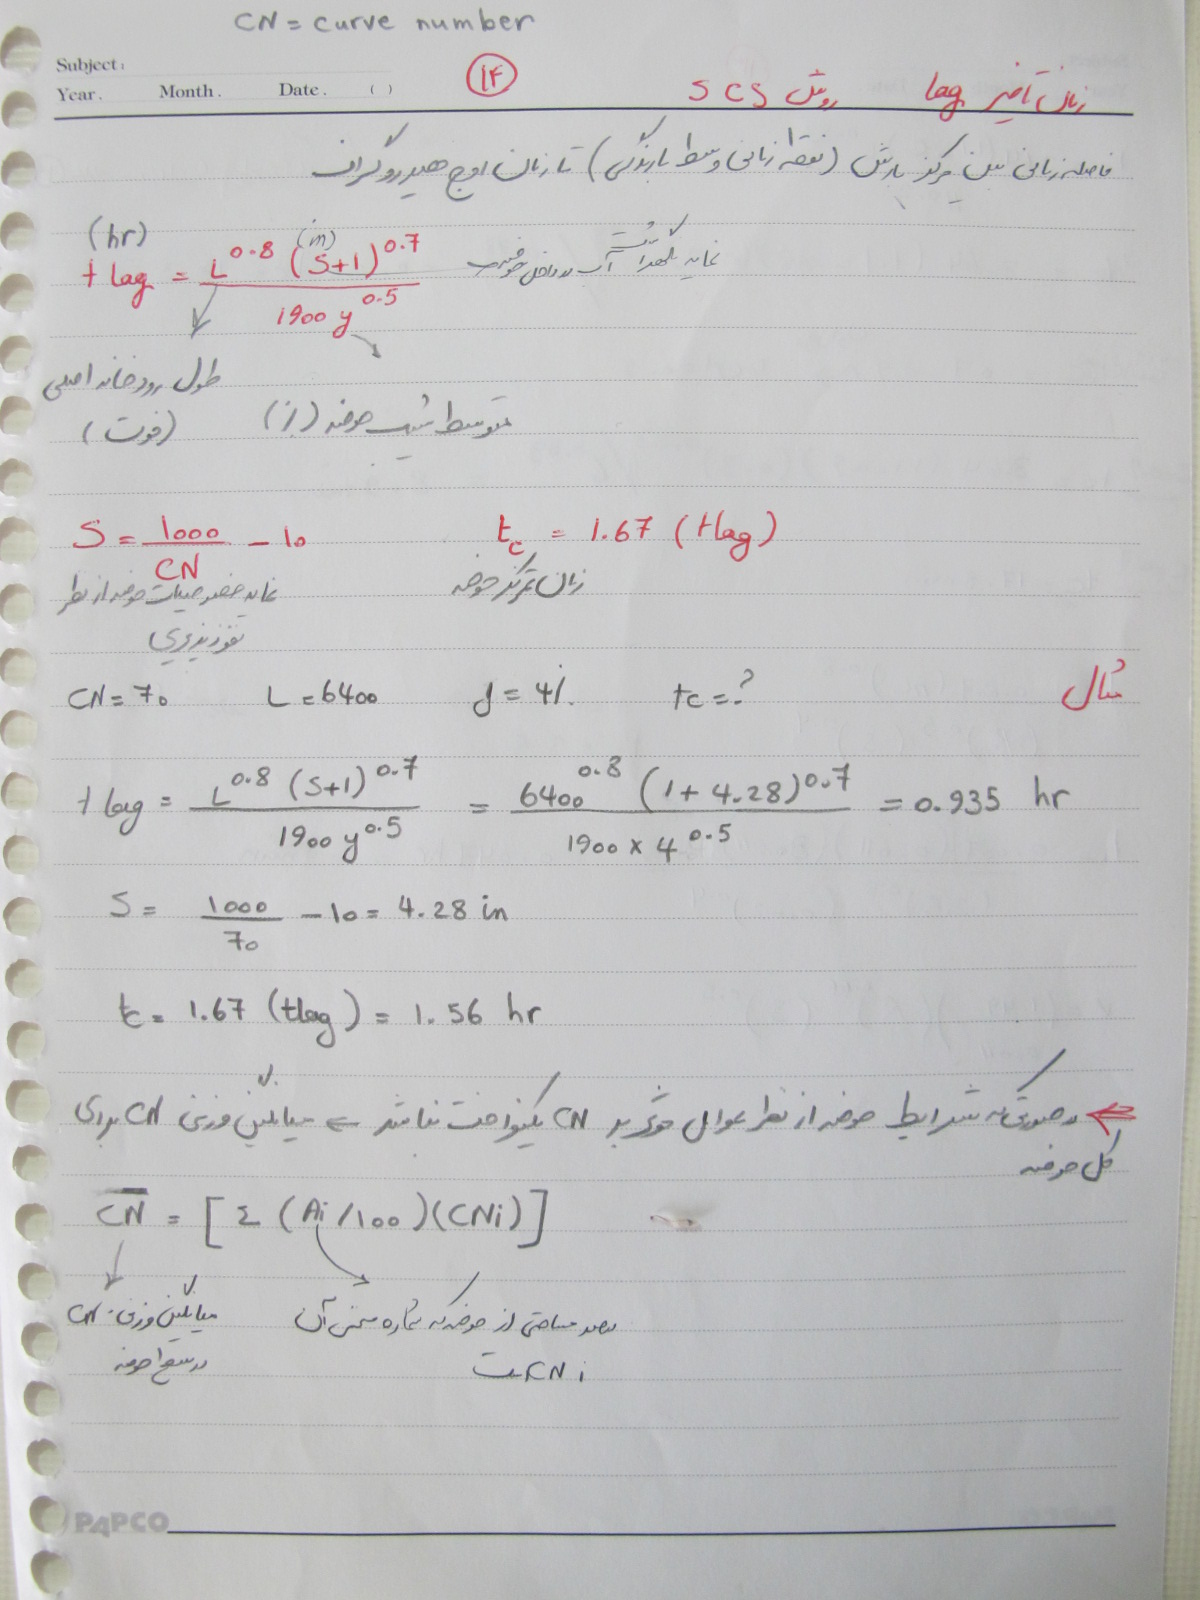 CN = curve number
Subject:
Year. Month. Date. ( )
۱۴
زمان تأخیر lag روش SCS
فاصله زمانی بین مرکز بارش (نقطه زمانی وسط بارندگی) تا زمان اوج هیدروگراف
(hr)
t lag = L^0.8 (S+1)^0.7 / 1900 y^0.5
(in)
نمایه نگهداشت آب در داخل حوضه
طول رودخانه اصلی
(فوت)
متوسط شیب حوضه (%)
S = 1000/CN - 10
tc = 1.67 (tlag)
نمایه خصوصیات حوضه از نظر
نفوذپذیری
زمان تمرکز حوضه
مثال
CN = 70 L = 6400 y = 4% tc = ?
t lag = L^0.8 (S+1)^0.7 / 1900 y^0.5 = 6400^0.8 (1+4.28)^0.7 / 1900 × 4^0.5 = 0.935 hr
S = 1000/70 - 10 = 4.28 in
tc = 1.67 (tlag) = 1.56 hr
⇐ در صورتی که شرایط حوضه از نظر عوامل مؤثر بر CN یکنواخت نباشد ← میانگین وزنی CN برای
کل حوضه
C̅N̅ = [Σ (Ai/100)(CNi)]
میانگین وزنی CN
در سطح حوضه
درصد مساحتی از حوضه که شماره منحنی آن
CNi است
PAPCO